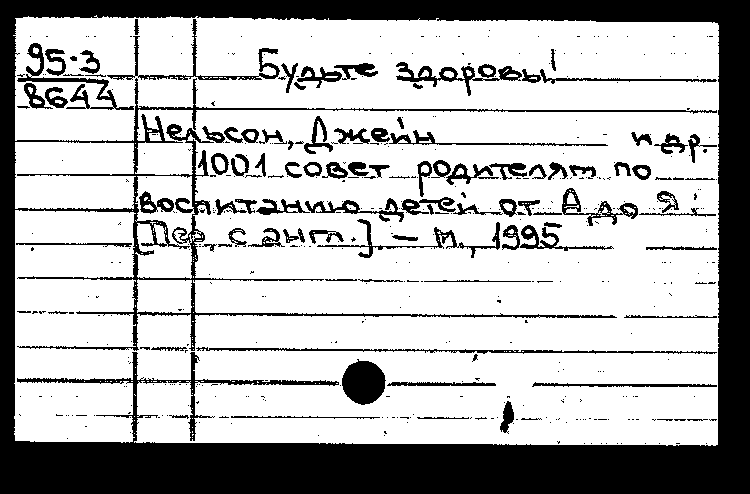 95-3 Будьте здоровы!
8644
Нельсон, Джейн и др.
1001 совет родителям по
воспитанию детей от А до Я:
[Пер. с англ.]. – М., 1995.